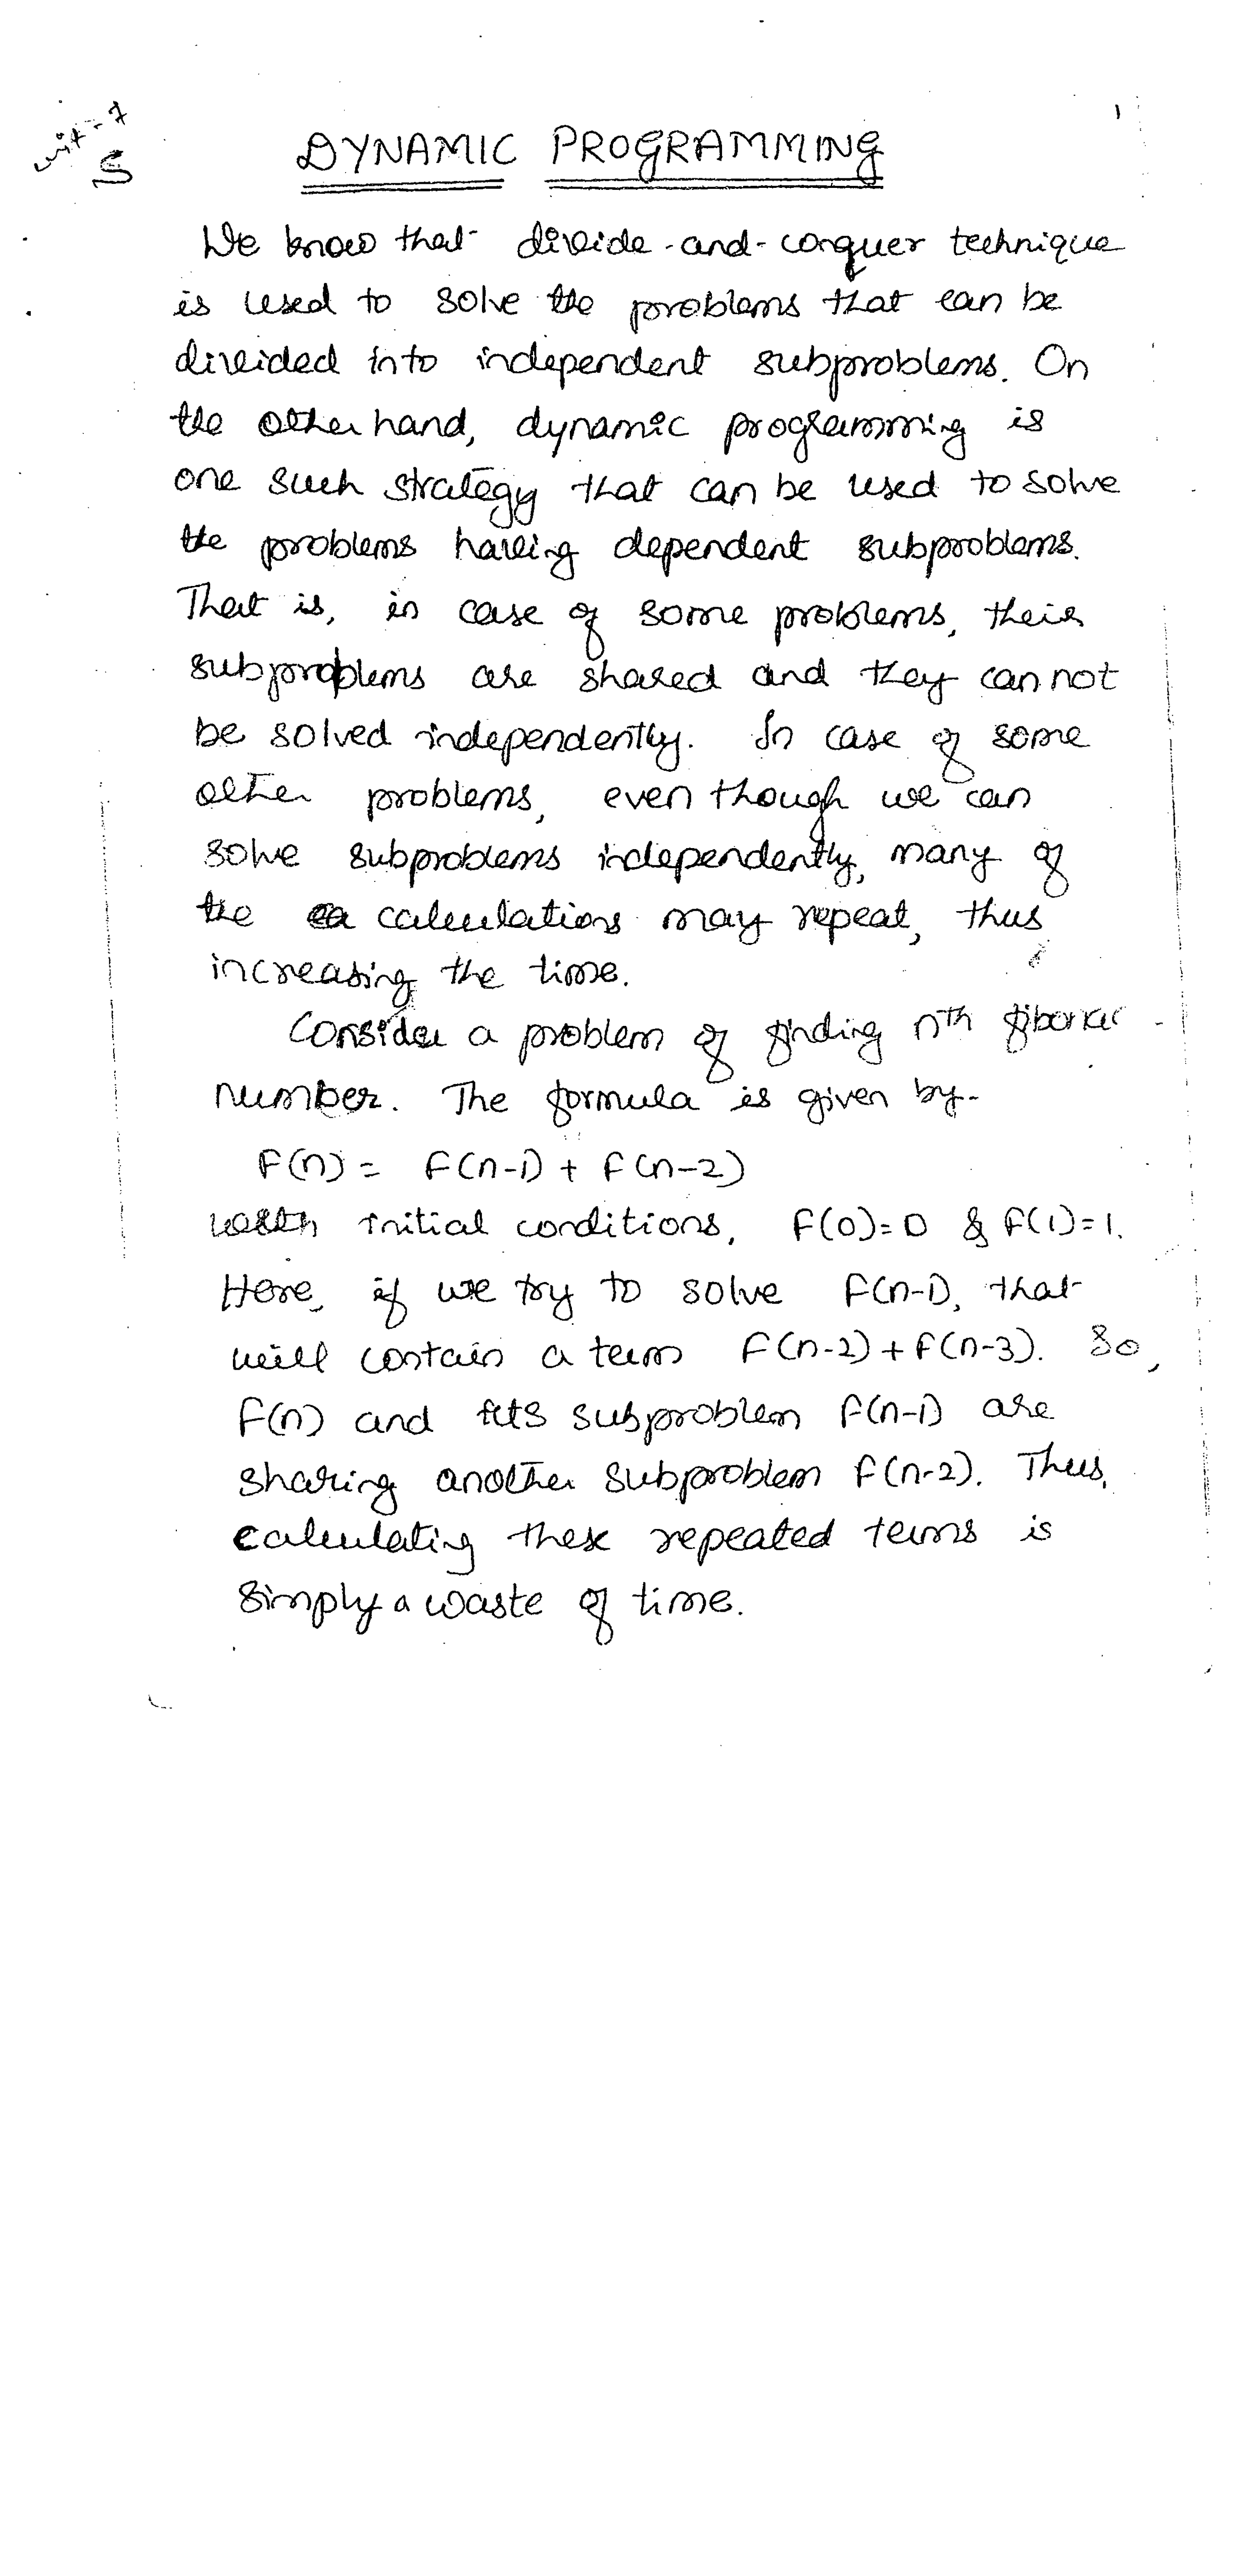 unit-7
5
1
DYNAMIC PROGRAMMING
We know that divide-and-conquer technique
is used to solve the problems that can be
divided into independent subproblems. On
the other hand, dynamic programming is
one such strategy that can be used to solve
the problems having dependent subproblems.
That is, in case of some problems, their
subproblems are shared and they can not
be solved independently. In case of some
other problems, even though we can
solve subproblems independently, many of
the calculations may repeat, thus
increasing the time.
Consider a problem of finding nth
number. The formula is given by-
F(n) = F(n-1) + F(n-2)
with initial conditions, F(0)=0 & F(1)=1.
Here, if we try to solve F(n-1), that
will contain a term F(n-2)+F(n-3). So,
F(n) and its subproblem F(n-1) are
sharing another subproblem F(n-2). Thus,
calculating these repeated terms is
simply a waste of time.